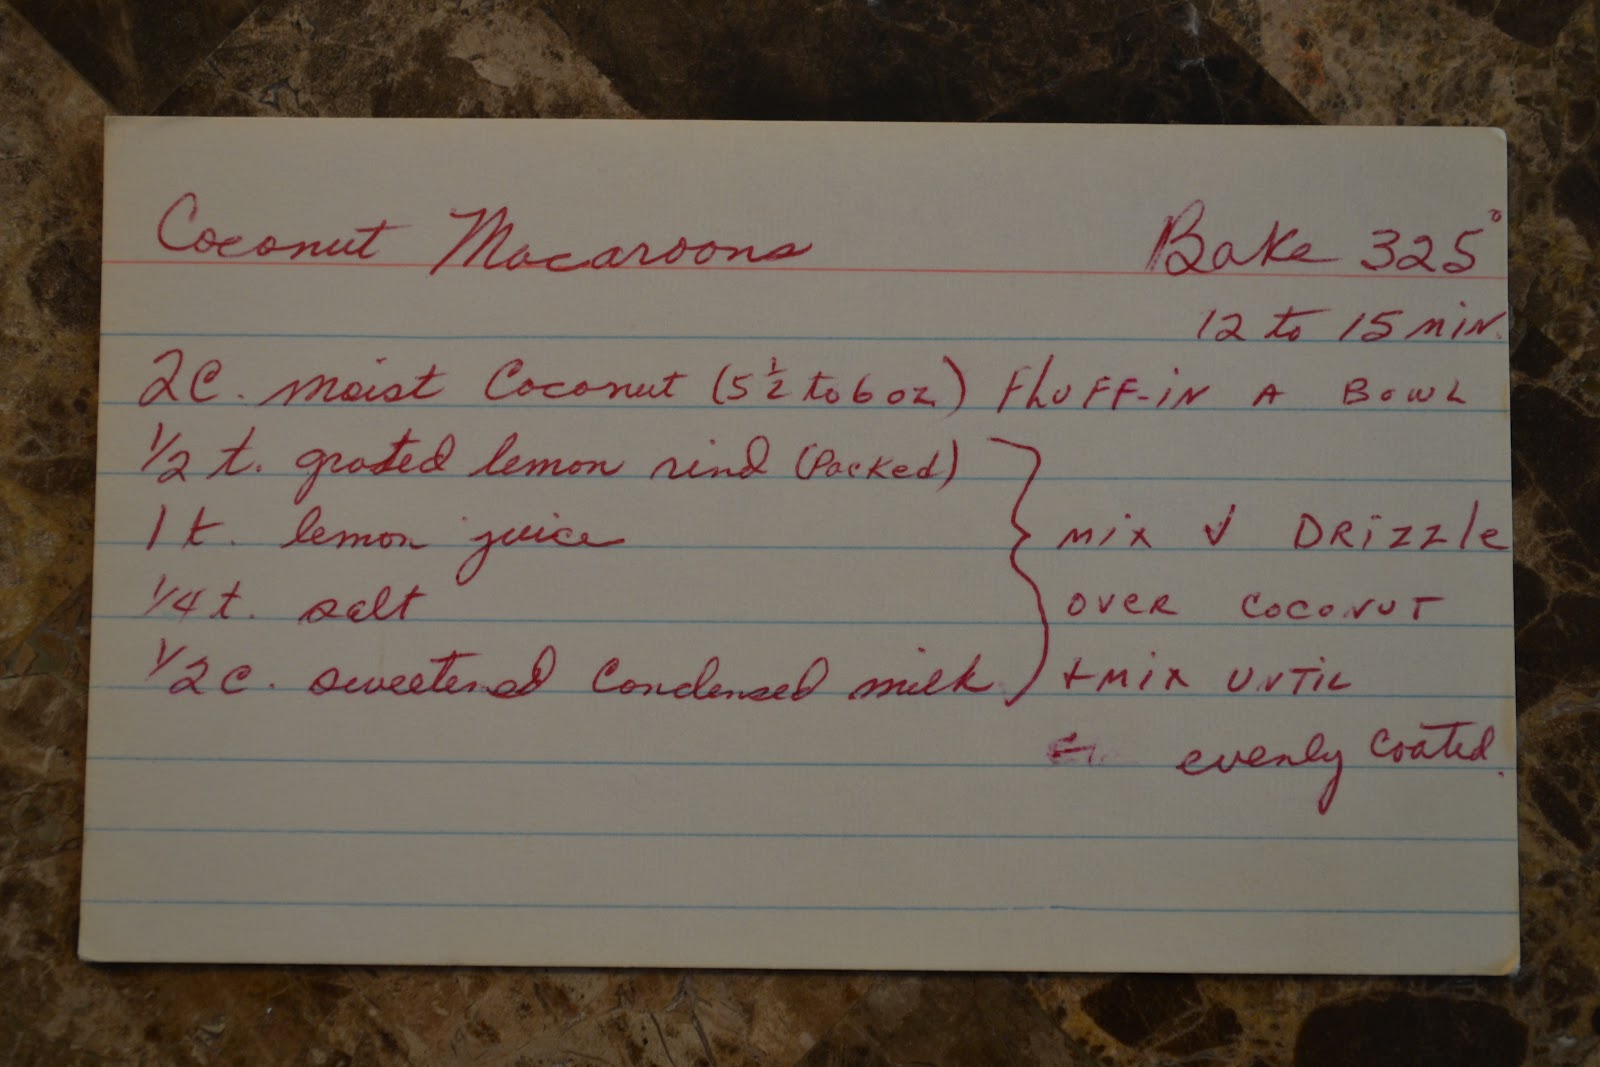 Coconut Macaroons Bake 325°
12 to 15 min.
2C. moist Coconut (5 1/2 to 6 oz.) Fluff-in A Bowl
1/2 t. grated lemon rind (Packed)
1 t. lemon juice mix & DRizzle
1/4 t. salt over coconut
1/2 c. sweetened Condensed milk + mix until
evenly coated.